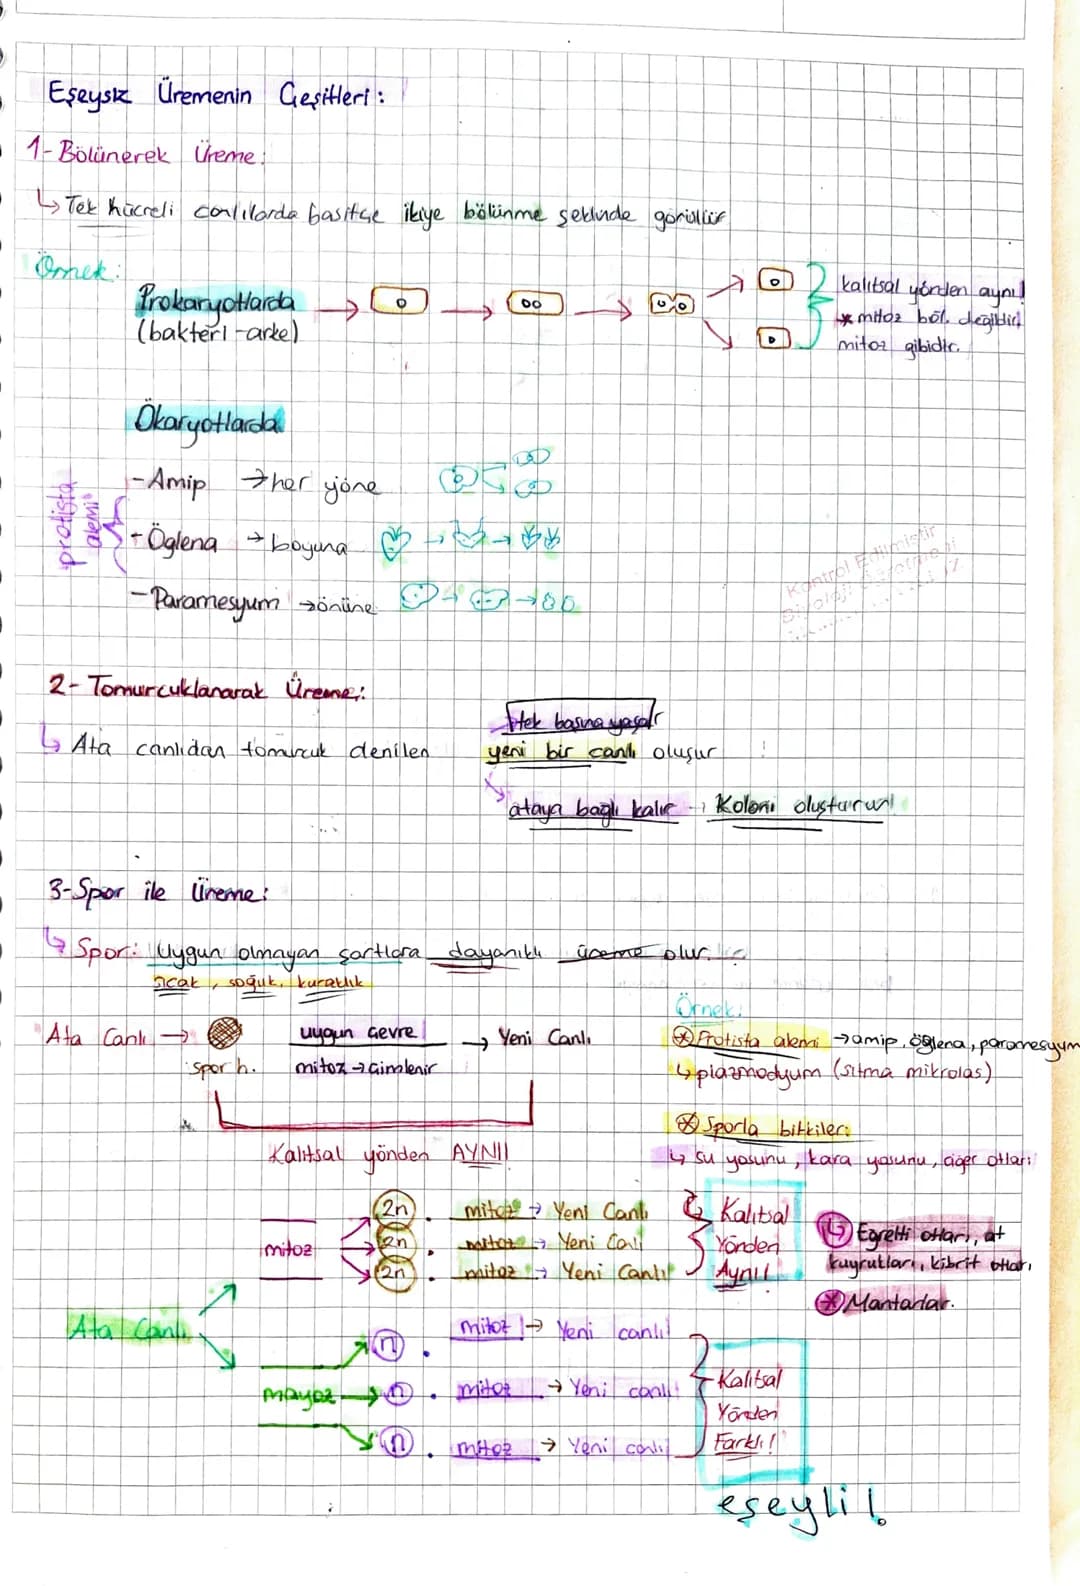 Eşeysiz Üremenin Çeşitleri:
1- Bölünerek Üreme:
↳ Tek hücreli canlılarda basitçe ikiye bölünme şeklinde görülür
Örnek:
Prokaryotlarda
(bakteri-arke)
kalıtsal yönden aynı!
* mitoz böl. değildir!
mitoz gibidir.
Ökaryotlarda
protista alemi
- Amip → her yöne
- Öglena → boyuna
- Paramesyum → enine
Kontrol Edilmiştir
2- Tomurcuklanarak Üreme:
tek başına yaşar
↳ Ata canlıdan tomurcuk denilen yeni bir canlı oluşur
ataya bağlı kalır → Koloni oluşturur!
3-Spor ile Üreme:
↳ Spor: Uygun olmayan şartlara dayanıklı üreme olur.
sıcak, soğuk, kuraklık
Örnek:
Ata Canlı → uygun çevre → Yeni Canlı
spor h. mitoz → Çimlenir
Kalıtsal yönden AYNI!
* Protista alemi → amip, öglena, paramesyum
↳ plazmodyum (sıtma mikrobu)
* Sporla bitkiler:
↳ su yosunu, kara yosunu, ciğer otları
↳ Eğrelti otları, at
kuyrukları, kibrit otları
* Mantarlar.
Ata Canlı
mitoz
2n . mitoz → Yeni Canlı
2n . mitoz → Yeni Canlı
2n . mitoz → Yeni Canlı
Kalıtsal
Yönden
Aynı!
mayoz
n . mitoz → Yeni canlı
n . mitoz → Yeni canlı
n . mitoz → Yeni canlı
Kalıtsal
Yönden
Farklı!
eşeyli!